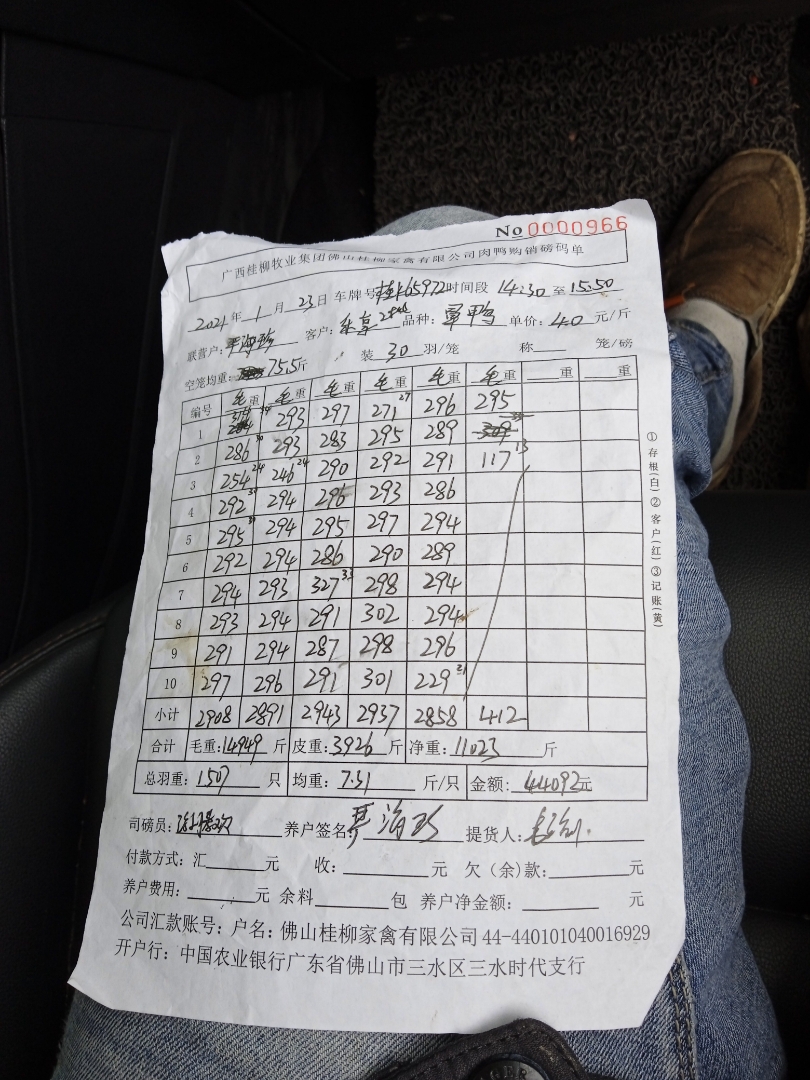 No 0000966
广西桂柳牧业集团佛山桂柳家禽有限公司肉鸭购销磅码单
2021年 1 月 23 日 车牌号 桂K65972 时间段 14:30 至 15:50
联营户: 海珍 客户: 品种: 鸭 单价: 4.0 元/斤
空笼均重: 75.5斤 装 30 羽/笼 称 笼/磅
编号 毛重 毛重 毛重 毛重 毛重 毛重 重 重
1 293 297 271 27 296 295
2 286 30 293 283 295 289 309
3 254 24 246 24 290 292 291 117 13
4 292 294 296 293 286
5 295 294 295 297 294
6 292 294 286 290 289
7 294 293 327 33 298 294
8 293 294 291 302 294
9 291 294 287 298 296
10 297 296 291 301 229 21
小计 2908 2891 2943 2937 2858 412
合计 毛重: 14949 斤 皮重: 3926 斤 净重: 11023 斤
总羽重: 1507 只 均重: 7.31 斤/只 金额: 44092元
司磅员: 养户签名: 海珍 提货人:
付款方式: 汇 元 收: 元 欠(余)款: 元
养户费用: 元 余料 包 养户净金额: 元
公司汇款账号: 户名: 佛山桂柳家禽有限公司 44-440101040016929
开户行: 中国农业银行广东省佛山市三水区三水时代支行
①存根(白)②客户(红)③记账(黄)